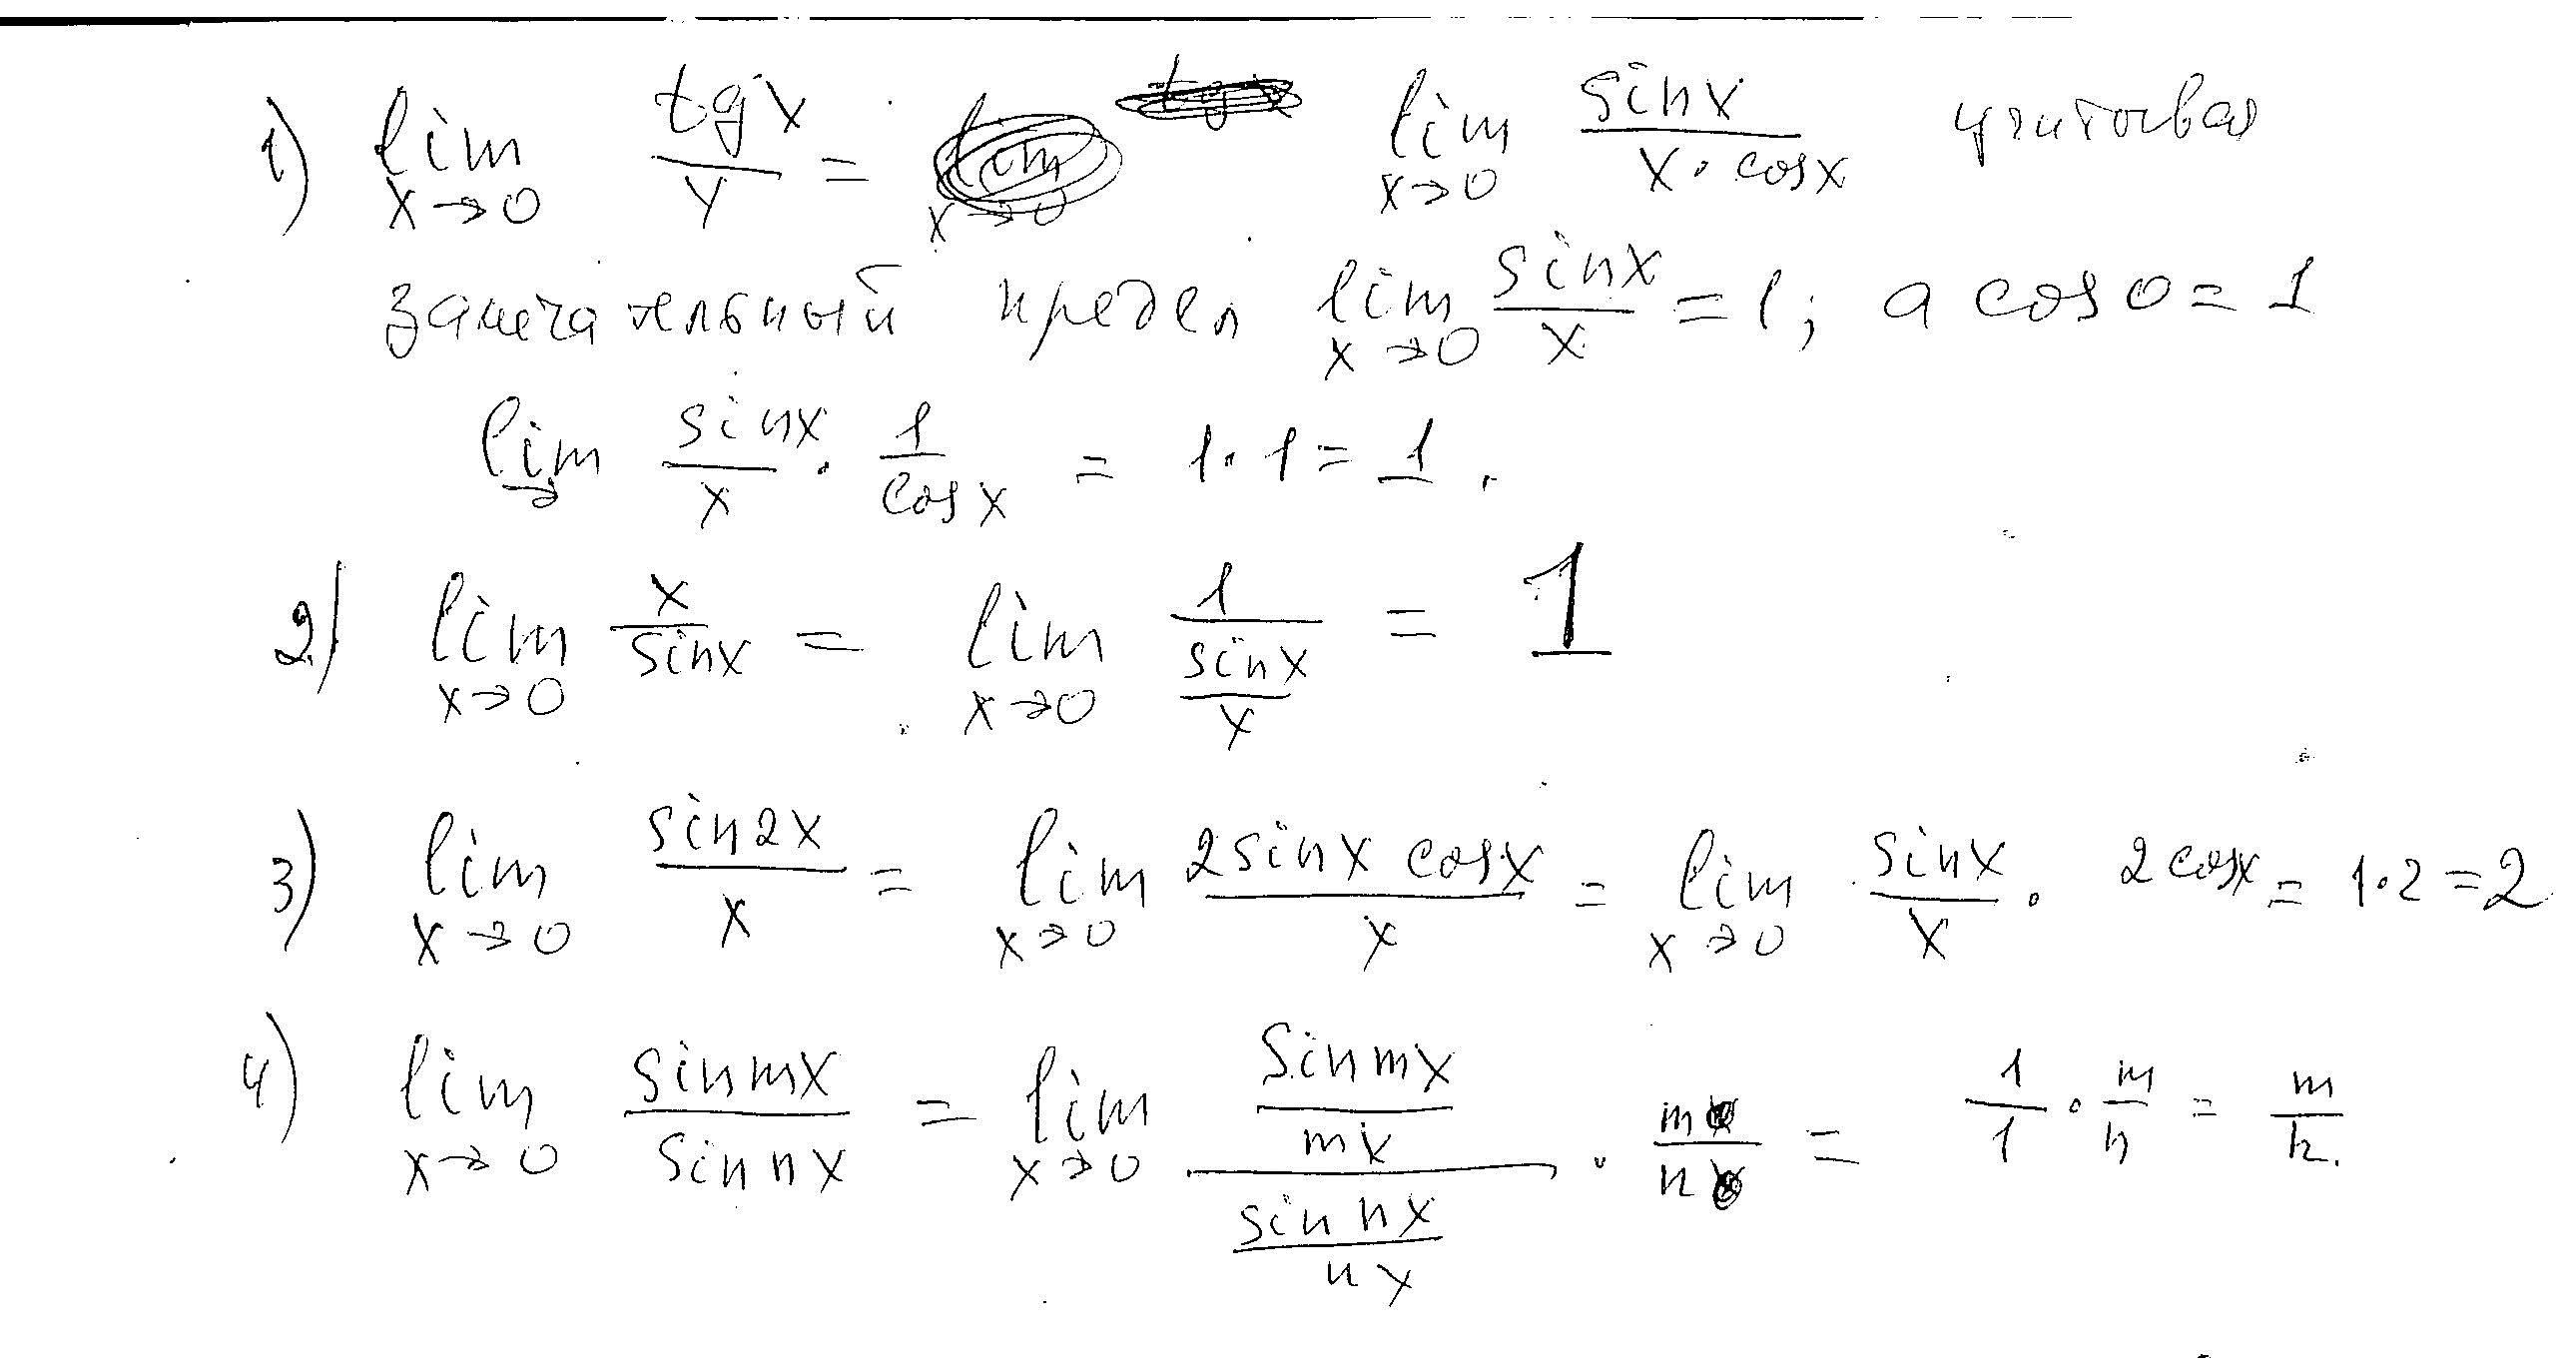 1) lim x→0 tgx/x = lim x→0 sinx/(x·cosx) учитывая
замечательный предел lim x→0 sinx/x = 1; а cos0 = 1
lim → sinx/x · 1/cosx = 1·1 = 1.
2) lim x→0 x/sinx = lim x→0 1/(sinx/x) = 1
3) lim x→0 sin2x/x = lim x→0 2sinx cosx/x = lim x→0 sinx/x · 2cosx = 1·2 = 2
4) lim x→0 sinmx/sinnx = lim x→0 (sinmx/mx)/(sinnx/nx) · m/n = 1/1 · m/n = m/n.